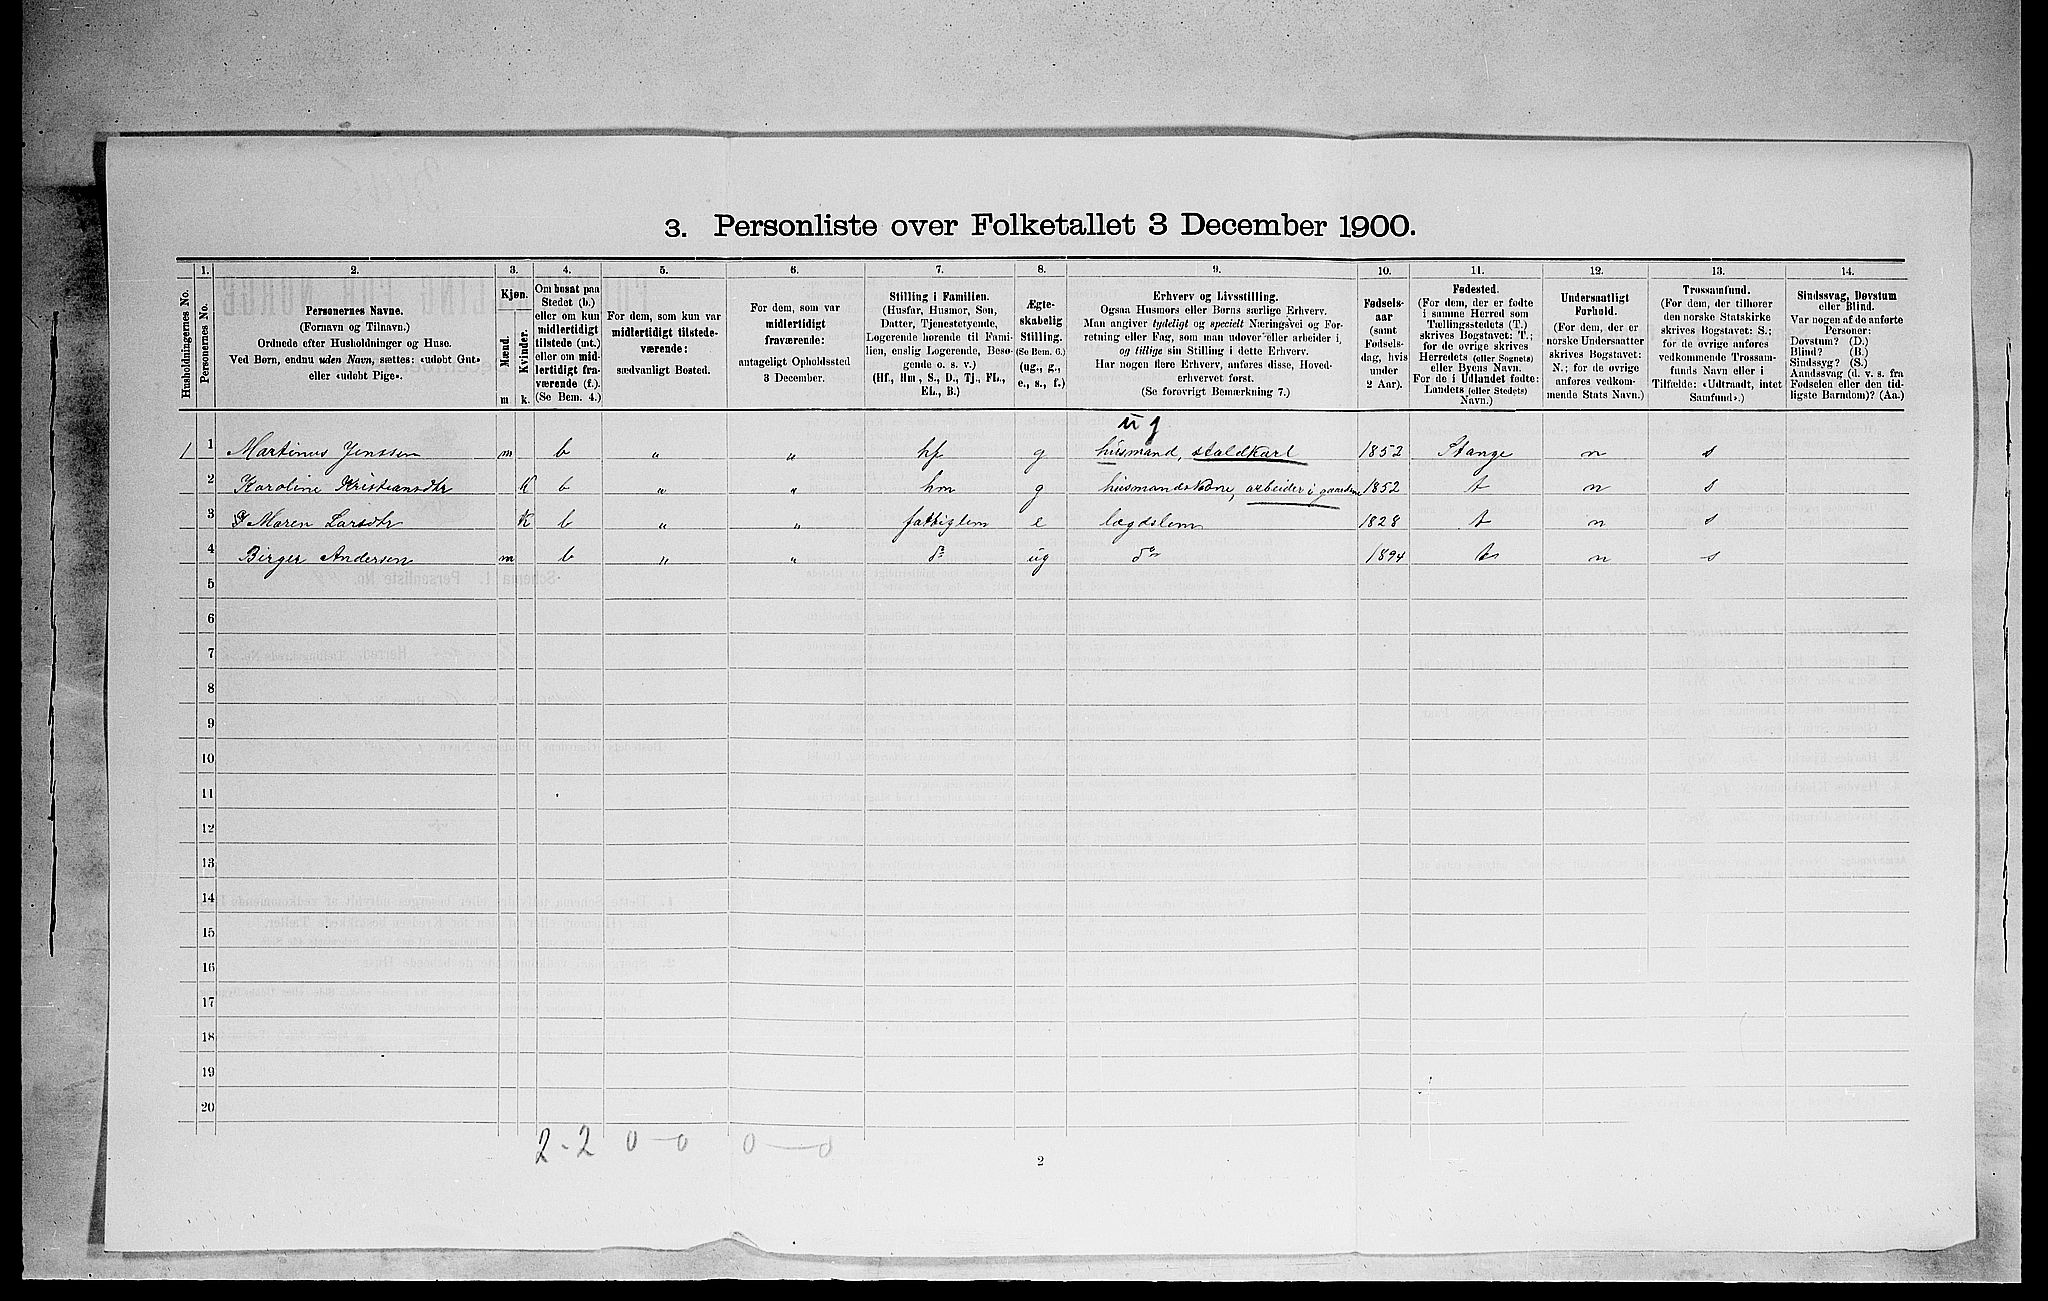 3. Personliste over Folketallet 3 December 1900.
1. 2. 3. 4. 5. 6. 7. 8. 9. 10. 11. 12. 13. 14.
Husholdningernes No.
Personernes No.
Personernes Navne.
(Fornavn og Tilnavn.)
Ordnede efter Husholdninger og Huse.
Ved Børn, endnu uden Navn, sættes: «udøbt Gut»
eller «udøbt Pige».
Kjøn.
Mænd.
Kvinder.
m k.
Om bosat paa
Stedet (b.)
eller om kun
midlertidigt
tilstede (mt.)
eller om mid-
lertidigt fra-
værende (f.).
(Se Bem. 4.)
For dem, som kun var
midlertidigt tilstede-
værende:
sædvanligt Bosted.
For dem, som var
midlertidigt
fraværende:
antageligt Opholdssted
3 December.
Stilling i Familien.
(Husfar, Husmor, Søn,
Datter, Tjenestetyende,
Logerende hørende til Fami-
lien, enslig Logerende, Besø-
gende o. s. v.)
(Hf., Hm., S., D., Tj., FL.,
EL., B.)
Ægte-
skabelig
Stilling.
(Se Bem. 6.)
(ug., g.,
e., s., f.)
Erhverv og Livsstilling.
Ogsaa Husmors eller Børns særlige Erhverv.
Man angiver tydeligt og specielt Næringsvei og For-
retning eller Fag, som man udøver eller arbeider i,
og tillige sin Stilling i dette Erhverv.
Har nogen flere Erhverv, anføres disse, Hoved-
erhvervet først.
(Se forøvrigt Bemærkning 7.)
Fødsels-
aar
(samt
Fødsels-
dag, hvis
under
2 Aar).
Fødested.
(For dem, der er fødte
i samme Herred som
Tællingsstedets (T.)
skrives Bogstavet: T.;
for de øvrige skrives
Herredets (eller Sognets)
eller Byens Navn.
For de i Udlandet fødte:
Landets (eller Stedets)
Navn.)
Undersaatligt
Forhold.
(For dem, der er
norske Undersaatter
skrives Bogstavet:
N.; for de øvrige
anføres vedkom-
mende Stats Navn.)
Trossamfund.
(For dem, der tilhører
den norske Statskirke
skrives Bogstavet: S.;
for de øvrige anføres
vedkommende Trossam-
funds Navn eller i
Tilfælde: «Udtraadt, intet
Samfund».)
Sindssvag, Døvstum
eller Blind.
Var nogen af de anførte
Personer:
Døvstum? (D.)
Blind? (B.)
Sindssyg? (S.)
Aandssvag (d. v. s. fra
Fødselen eller den tid-
ligste Barndom)? (Aa.)
ug
1 1 Martinus Jenssen m b " " hf g husmand, staldkarl 1852 Stange n s
2 Karoline Kristiansdtr K b " " hm g husmandskone, arbeider i gaarden 1852 t n s
3 Maren Larsdtr K b " " fattiglem e lægdslem 1828 t n s
4 Birger Andersen m b " " do ug do 1894 t n s
5
6
7
8
9
10
11
12
13
14
15
16
17
18
19
20
2-2 0-0 0-0
2